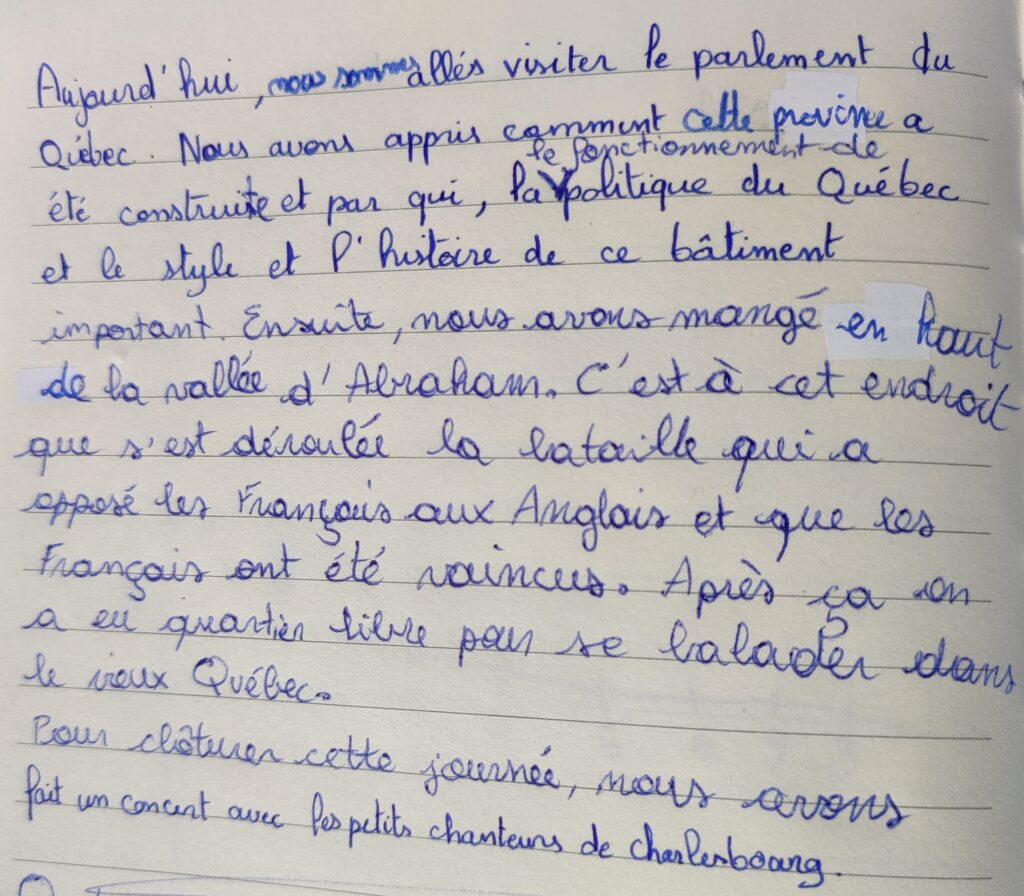 Aujourd'hui, nous sommes allés visiter le parlement du
Québec. Nous avons appris comment cette province a
le fonctionnement de
été construite et par qui, la politique du Québec
et le style et l'histoire de ce bâtiment
important. Ensuite, nous avons mangé en haut
de la vallée d'Abraham. C'est à cet endroit
que s'est déroulée la bataille qui a
opposé les Français aux Anglais et que les
Français ont été vaincus. Après ça on
a eu quartier libre pour se balader dans
le vieux Québec.
Pour clôturer cette journée, nous avons
fait un concert avec les petits chanteurs de charlesbourg.